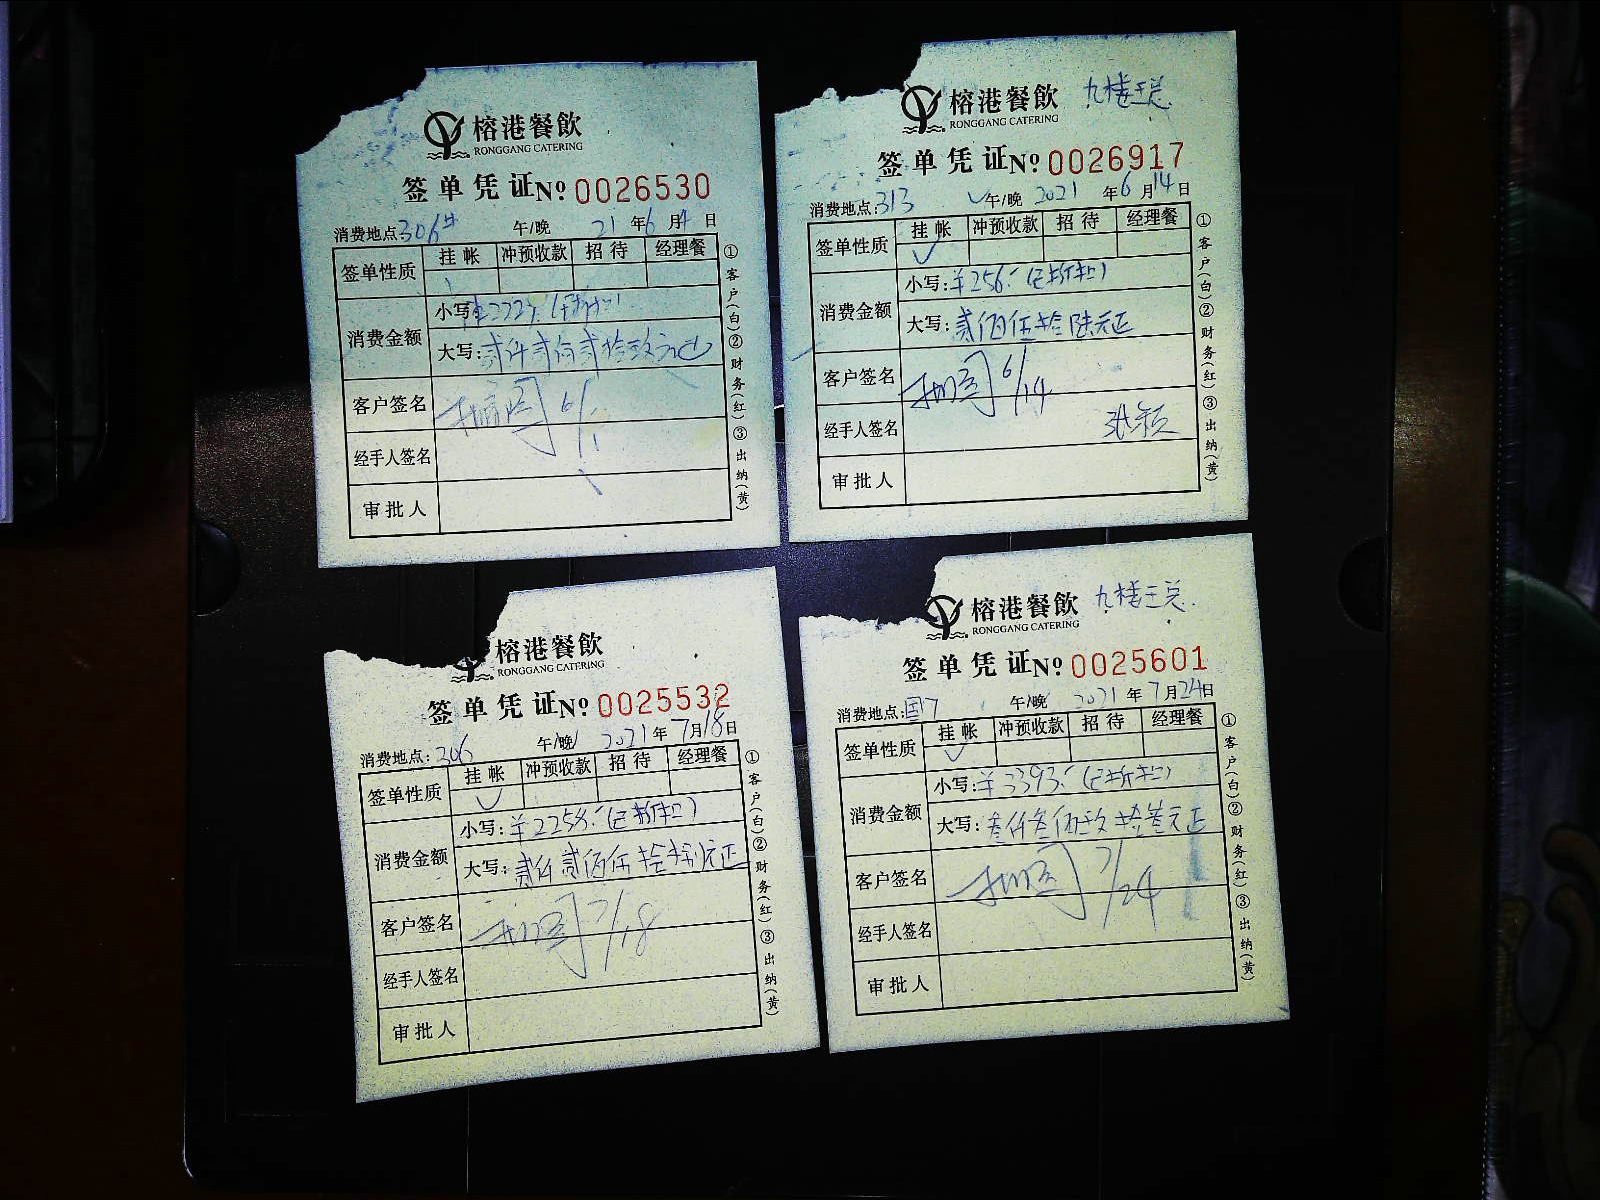 榕港餐飲
RONGGANG CATERING
签单凭证 № 0026530
消费地点: 306# 午/晚 21年6月4日
签单性质 挂帐 冲预收款 招待 经理餐
消费金额 小写
大写: 贰仟贰佰贰拾玖元正
客户签名
经手人签名
审批人
①客户(白)②财务(红)③出纳(黄)
榕港餐飲 九楼王总
RONGGANG CATERING
签单凭证 № 0026917
消费地点: 313 午/晚 2021年6月14日
签单性质 挂帐 冲预收款 招待 经理餐
消费金额 小写: ¥256.(已折扣)
大写: 贰佰伍拾陆元正
客户签名 6/14
经手人签名
审批人
①客户(白)②财务(红)③出纳(黄)
榕港餐飲
RONGGANG CATERING
签单凭证 № 0025532
消费地点: 306 午/晚 2021年7月18日
签单性质 挂帐 冲预收款 招待 经理餐
消费金额 小写: ¥2258.(已折扣)
大写: 贰仟贰佰伍拾捌元正
客户签名 7/18
经手人签名
审批人
①客户(白)②财务(红)③出纳(黄)
榕港餐飲 九楼王总.
RONGGANG CATERING
签单凭证 № 0025601
消费地点: 国7 午/晚 2021年7月24日
签单性质 挂帐 冲预收款 招待 经理餐
消费金额 小写: ¥3393.(已折扣)
大写: 叁仟叁佰玖拾叁元正
客户签名 7/24
经手人签名
审批人
①客户(白)②财务(红)③出纳(黄)